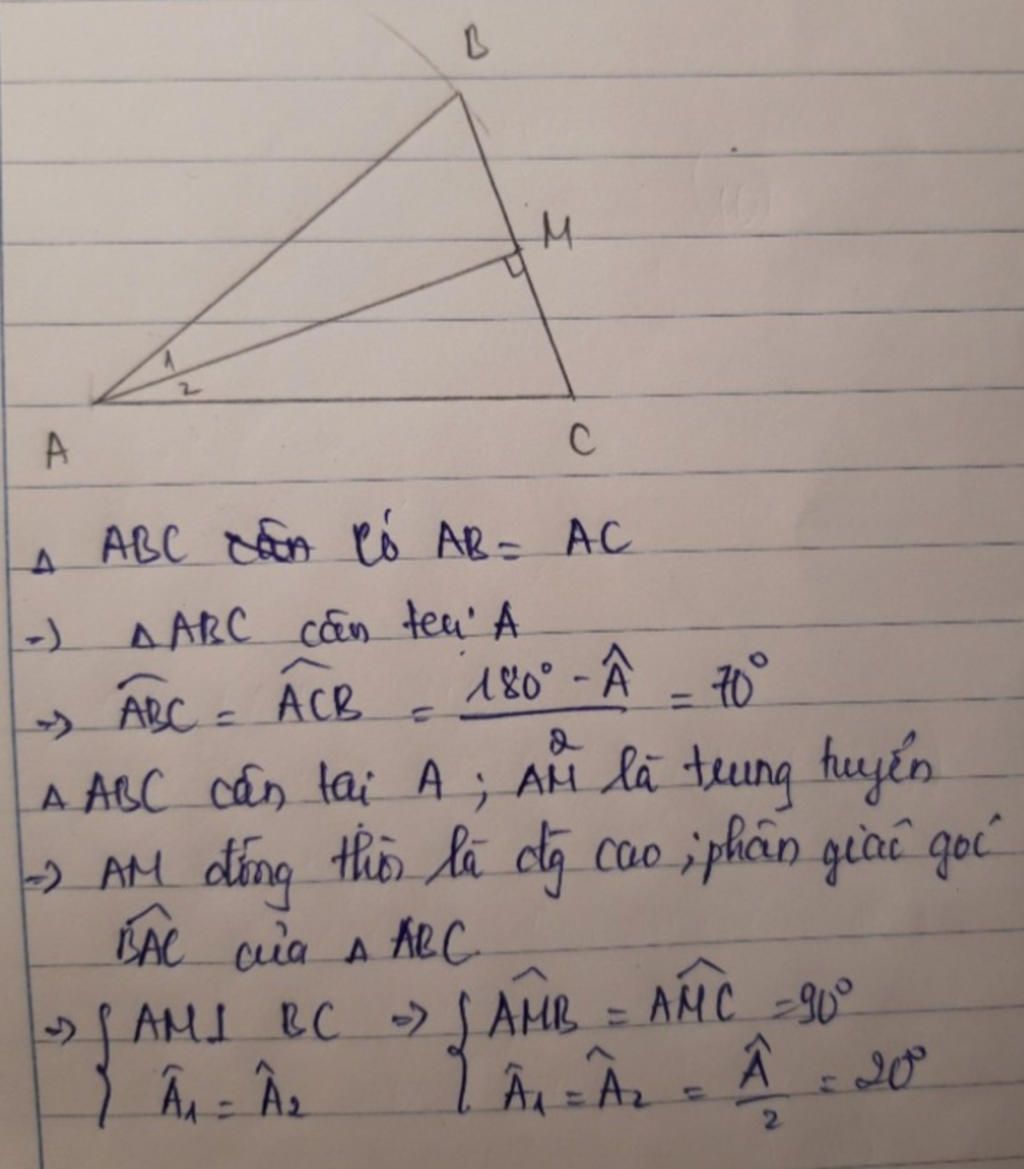 B
M
1
2
A
C
Δ ABC cân có AB = AC
-) Δ ABC cân tại A
=> \widehat{ABC} = \widehat{ACB} = \frac{180° - \hat{A}}{2} = 70°
Δ ABC cân tại A ; AM là trung tuyến
=> AM đồng thời là đg cao ; phân giác góc
\widehat{BAC} của Δ ABC
=> { AM ⊥ BC => { \widehat{AMB} = \widehat{AMC} = 90°
\hat{A}_1 = \hat{A}_2 \hat{A}_1 = \hat{A}_2 = \frac{\hat{A}}{2} = 20°